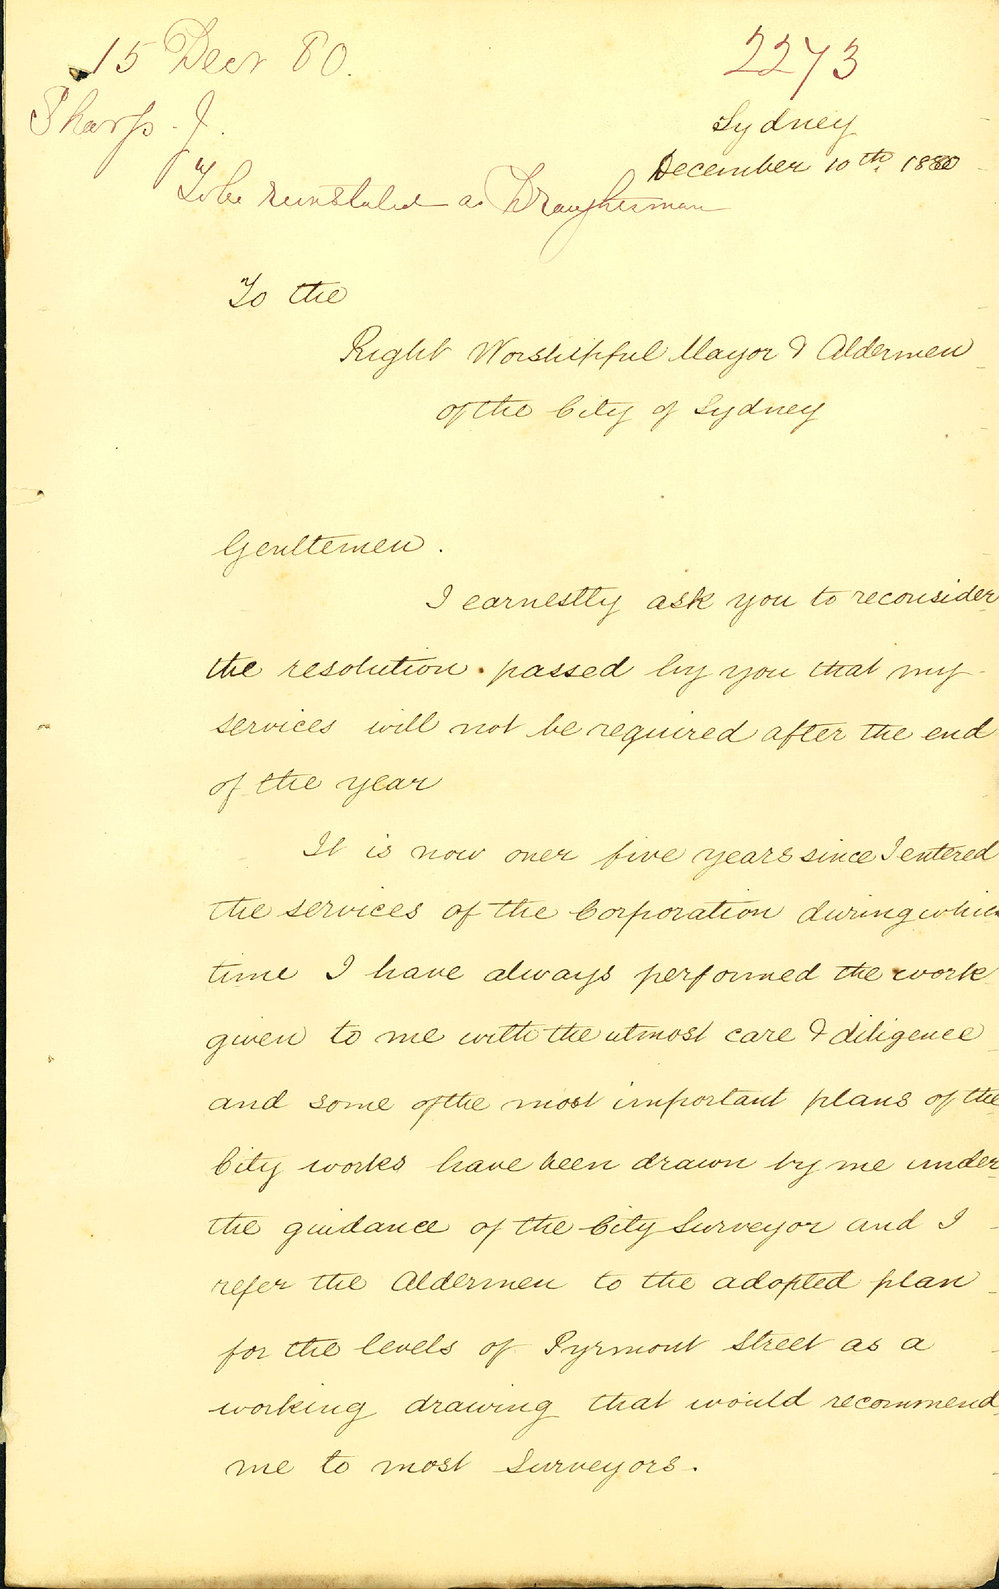 15 Decr 80.
2273
Sharp. J.
Sydney
December 10th. 1880
To be reinstated as Draughtsman
To the
Right Worshipful Mayor & Aldermen
of the City of Sydney
Gentlemen.
I earnestly ask you to reconsider
the resolution passed by you that my
services will not be required after the end
of the year
It is now over five years since I entered
the services of the Corporation during which
time I have always performed the work
given to me with the utmost care & diligence
and some of the most important plans of the
City works have been drawn by me under
the guidance of the City Surveyor and I
refer the Aldermen to the adopted plan
for the levels of Pyrmont Street as a
working drawing that would recommend
me to most Surveyors.